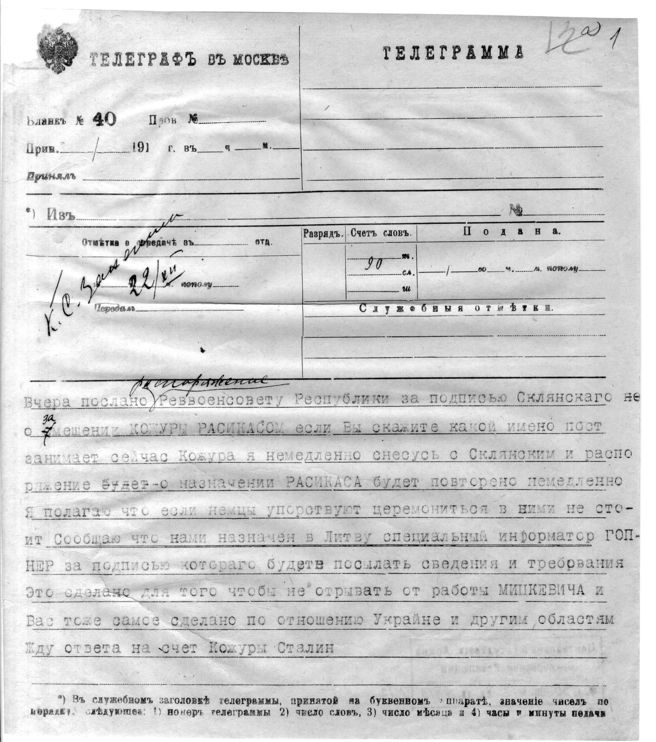 12а) 1
ТЕЛЕГРАФЪ ВЪ МОСКВѢ
ТЕЛЕГРАММА
Бланкъ № 40 Пров №
Прин. / 191 г. въ ч м.
Принялъ
*) Изъ №
Отмѣтка о передачѣ въ отд.
22/XII
пополу
Передалъ
К. С.
Разрядъ. Счетъ словъ. Подана.
90 т.
сл.
ш
/ го ч. м. пополу
Служебныя отмѣтки.
распоряжение
Вчера послано Реввоенсовету Республики за подписью Склянскаго не
за
о мещении КОЖУРЫ РАСИКАСОМ если Вы скажите какой имено пост
занимает сейчас Кожура я немедленно снесусь с Склянским и распо
ряжение будет о назначении РАСИКАСА будет повторено немедленно
Я полагаю что если немцы упорствуют церемониться в ними не сто-
ит Сообщаю что нами назначен в Литву специальный информатор ГОП-
НЕР за подписью котораго будете посылать сведения и требования
Это сделано для того чтобы не отрывать от работы МИЦКЕВИЧА и
Вас тоже самое сделано по отношению Украйне и другим областям
Жду ответа на счет Кожуры Сталин
*) Въ служебномъ заголовкѣ телеграммы, принятой на буквенномъ аппаратѣ, значеніе чиселъ по
порядку слѣдующее: 1) номеръ телеграммы 2) число словъ, 3) число мѣсяца и 4) часы и минуты подачи